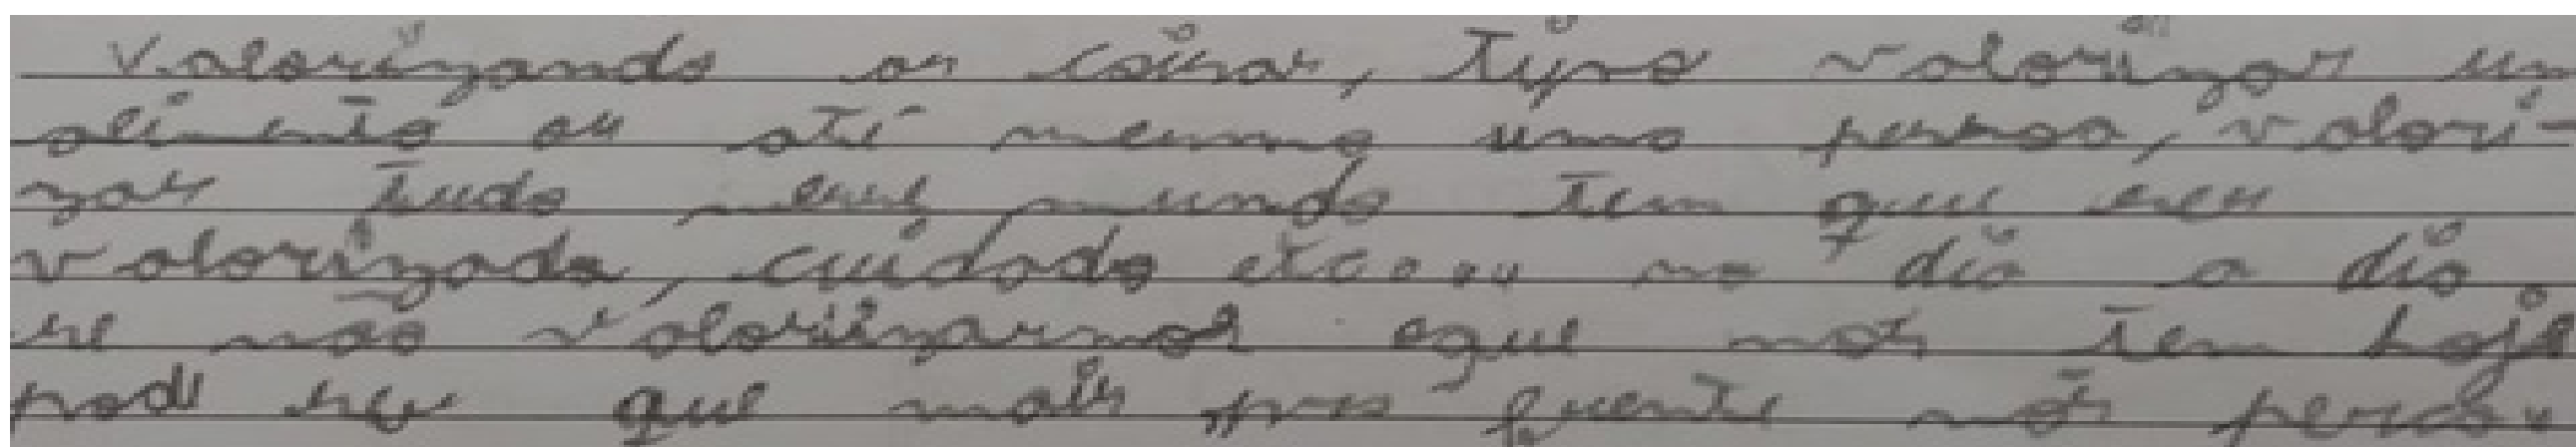 Valorizando as coisas, tipo valorizar um
alimento ou até mesmo uma pessoa, valori-
zar tudo nesse mundo tem que ser
valorizado, cuidado etc.... no dia a dia
se não valorizarmos oque nós tem hoje
pode ser que mais pra frente nós perca